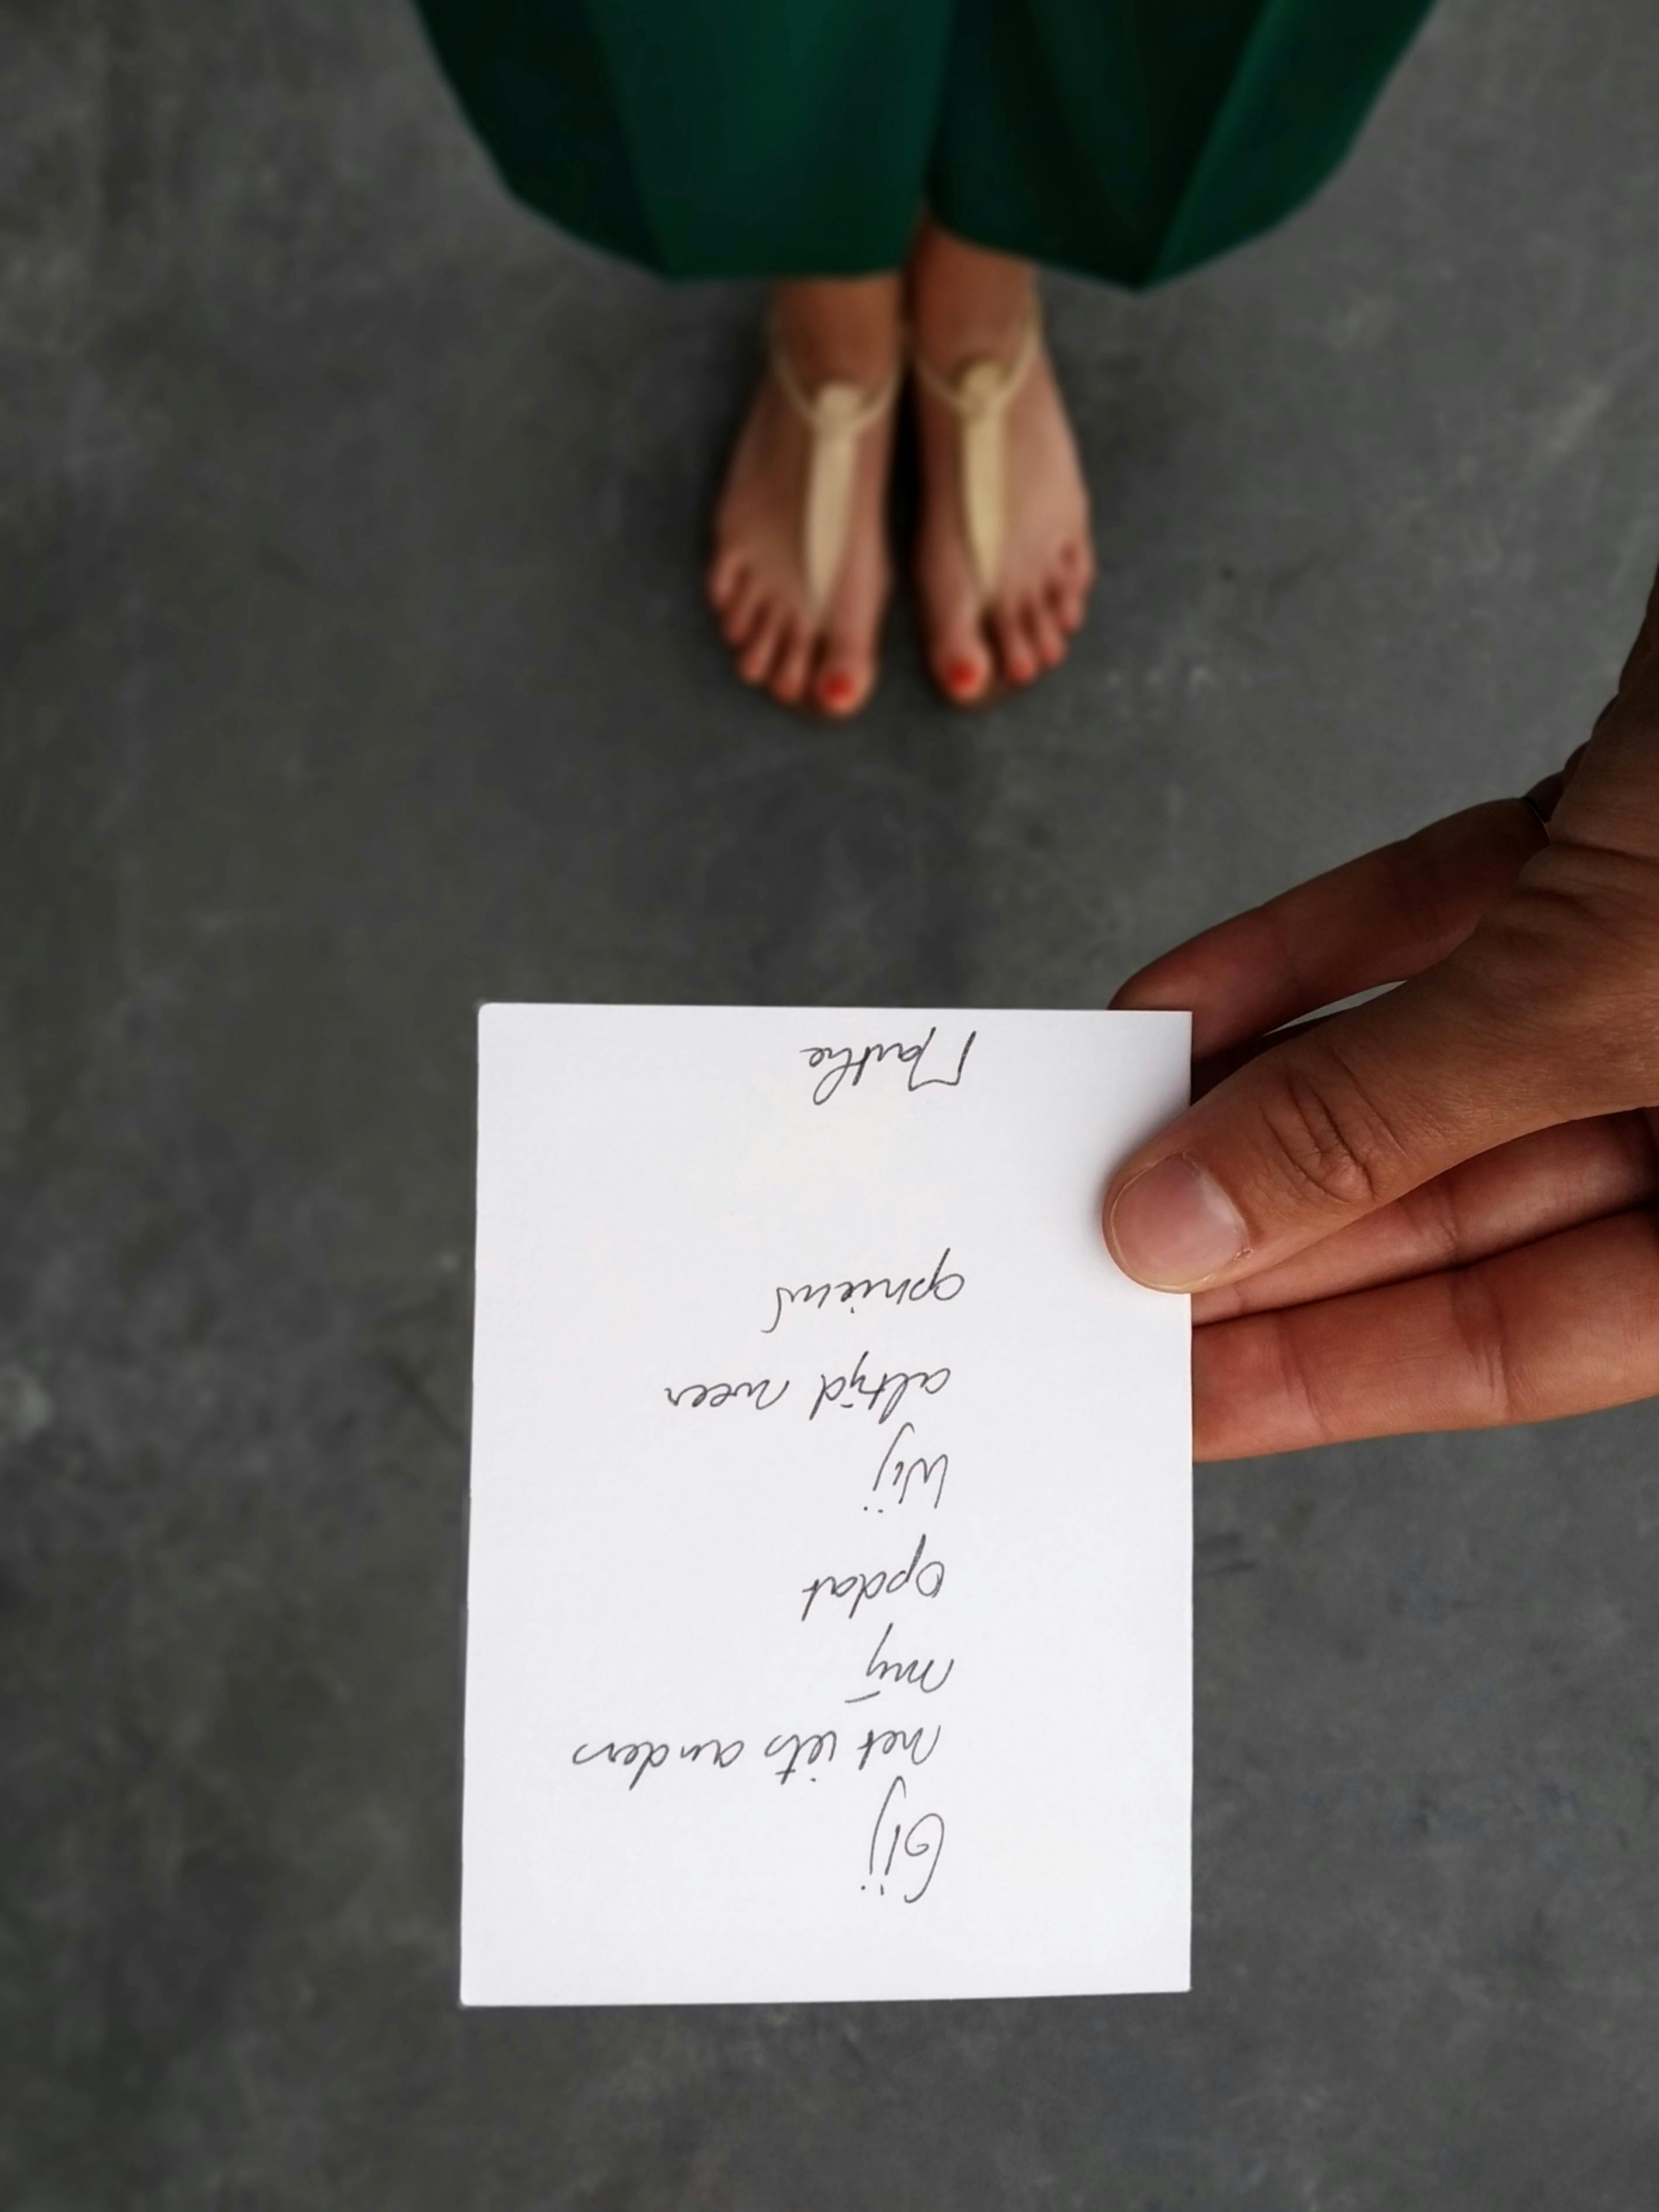 Gij
net iets anders
mij
opdat
wij
altijd weer
opnieuw
Marthe